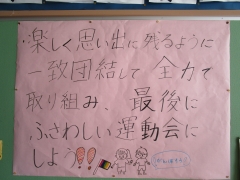 ・楽しく思い出に残るように
一致団結して 全力で
取り組み、最後に
ふさわしい運動会に
しよう!!